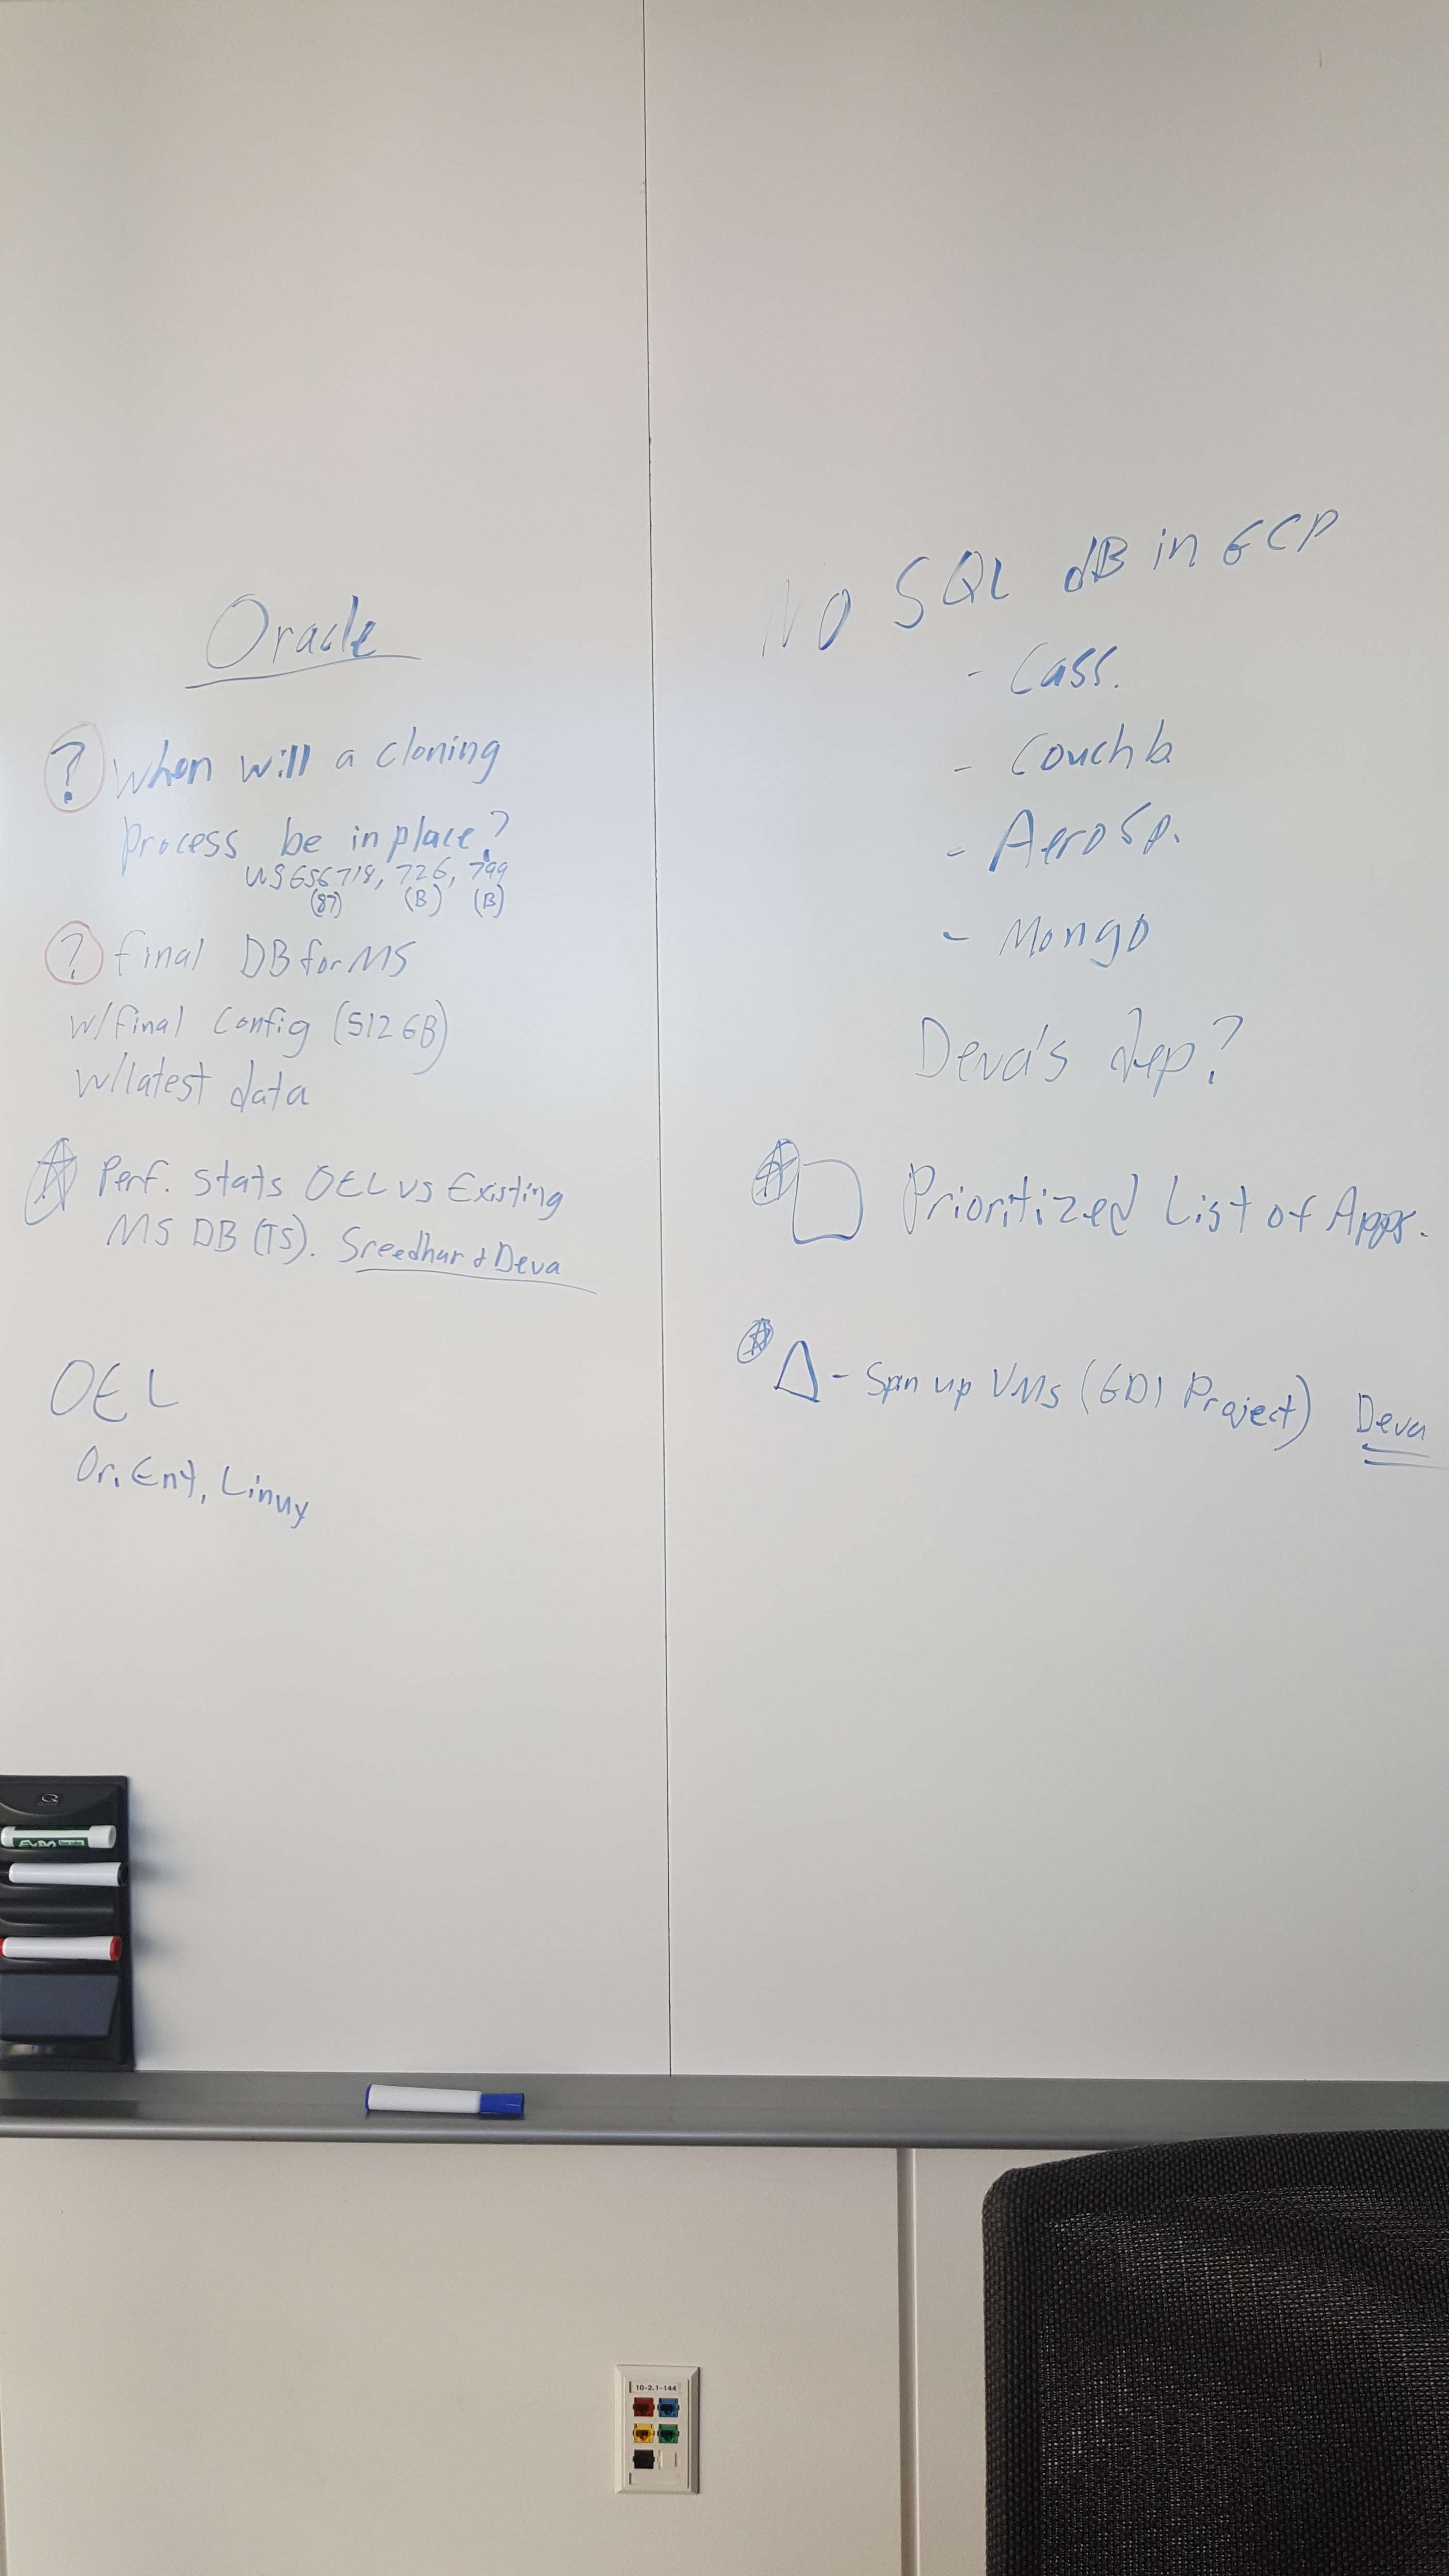 Oracle
? When will a cloning
process be in place?
US656718, 726, 799
(87) (B) (B)
? final DB for MS
w/final config (512GB)
w/latest data
Perf. stats OEL vs Existing
MS DB (TS). Sreedhar & Deva
OEL
Or. Ent, Linux
NO SQL dB in GCP
- Cass.
- Couchb.
- AeroSp.
- Mongo
Deva's dep?
Prioritized List of Apps.
Δ - Spin up VMs (GDI Project) Deva
EXPO
10-2.1-144